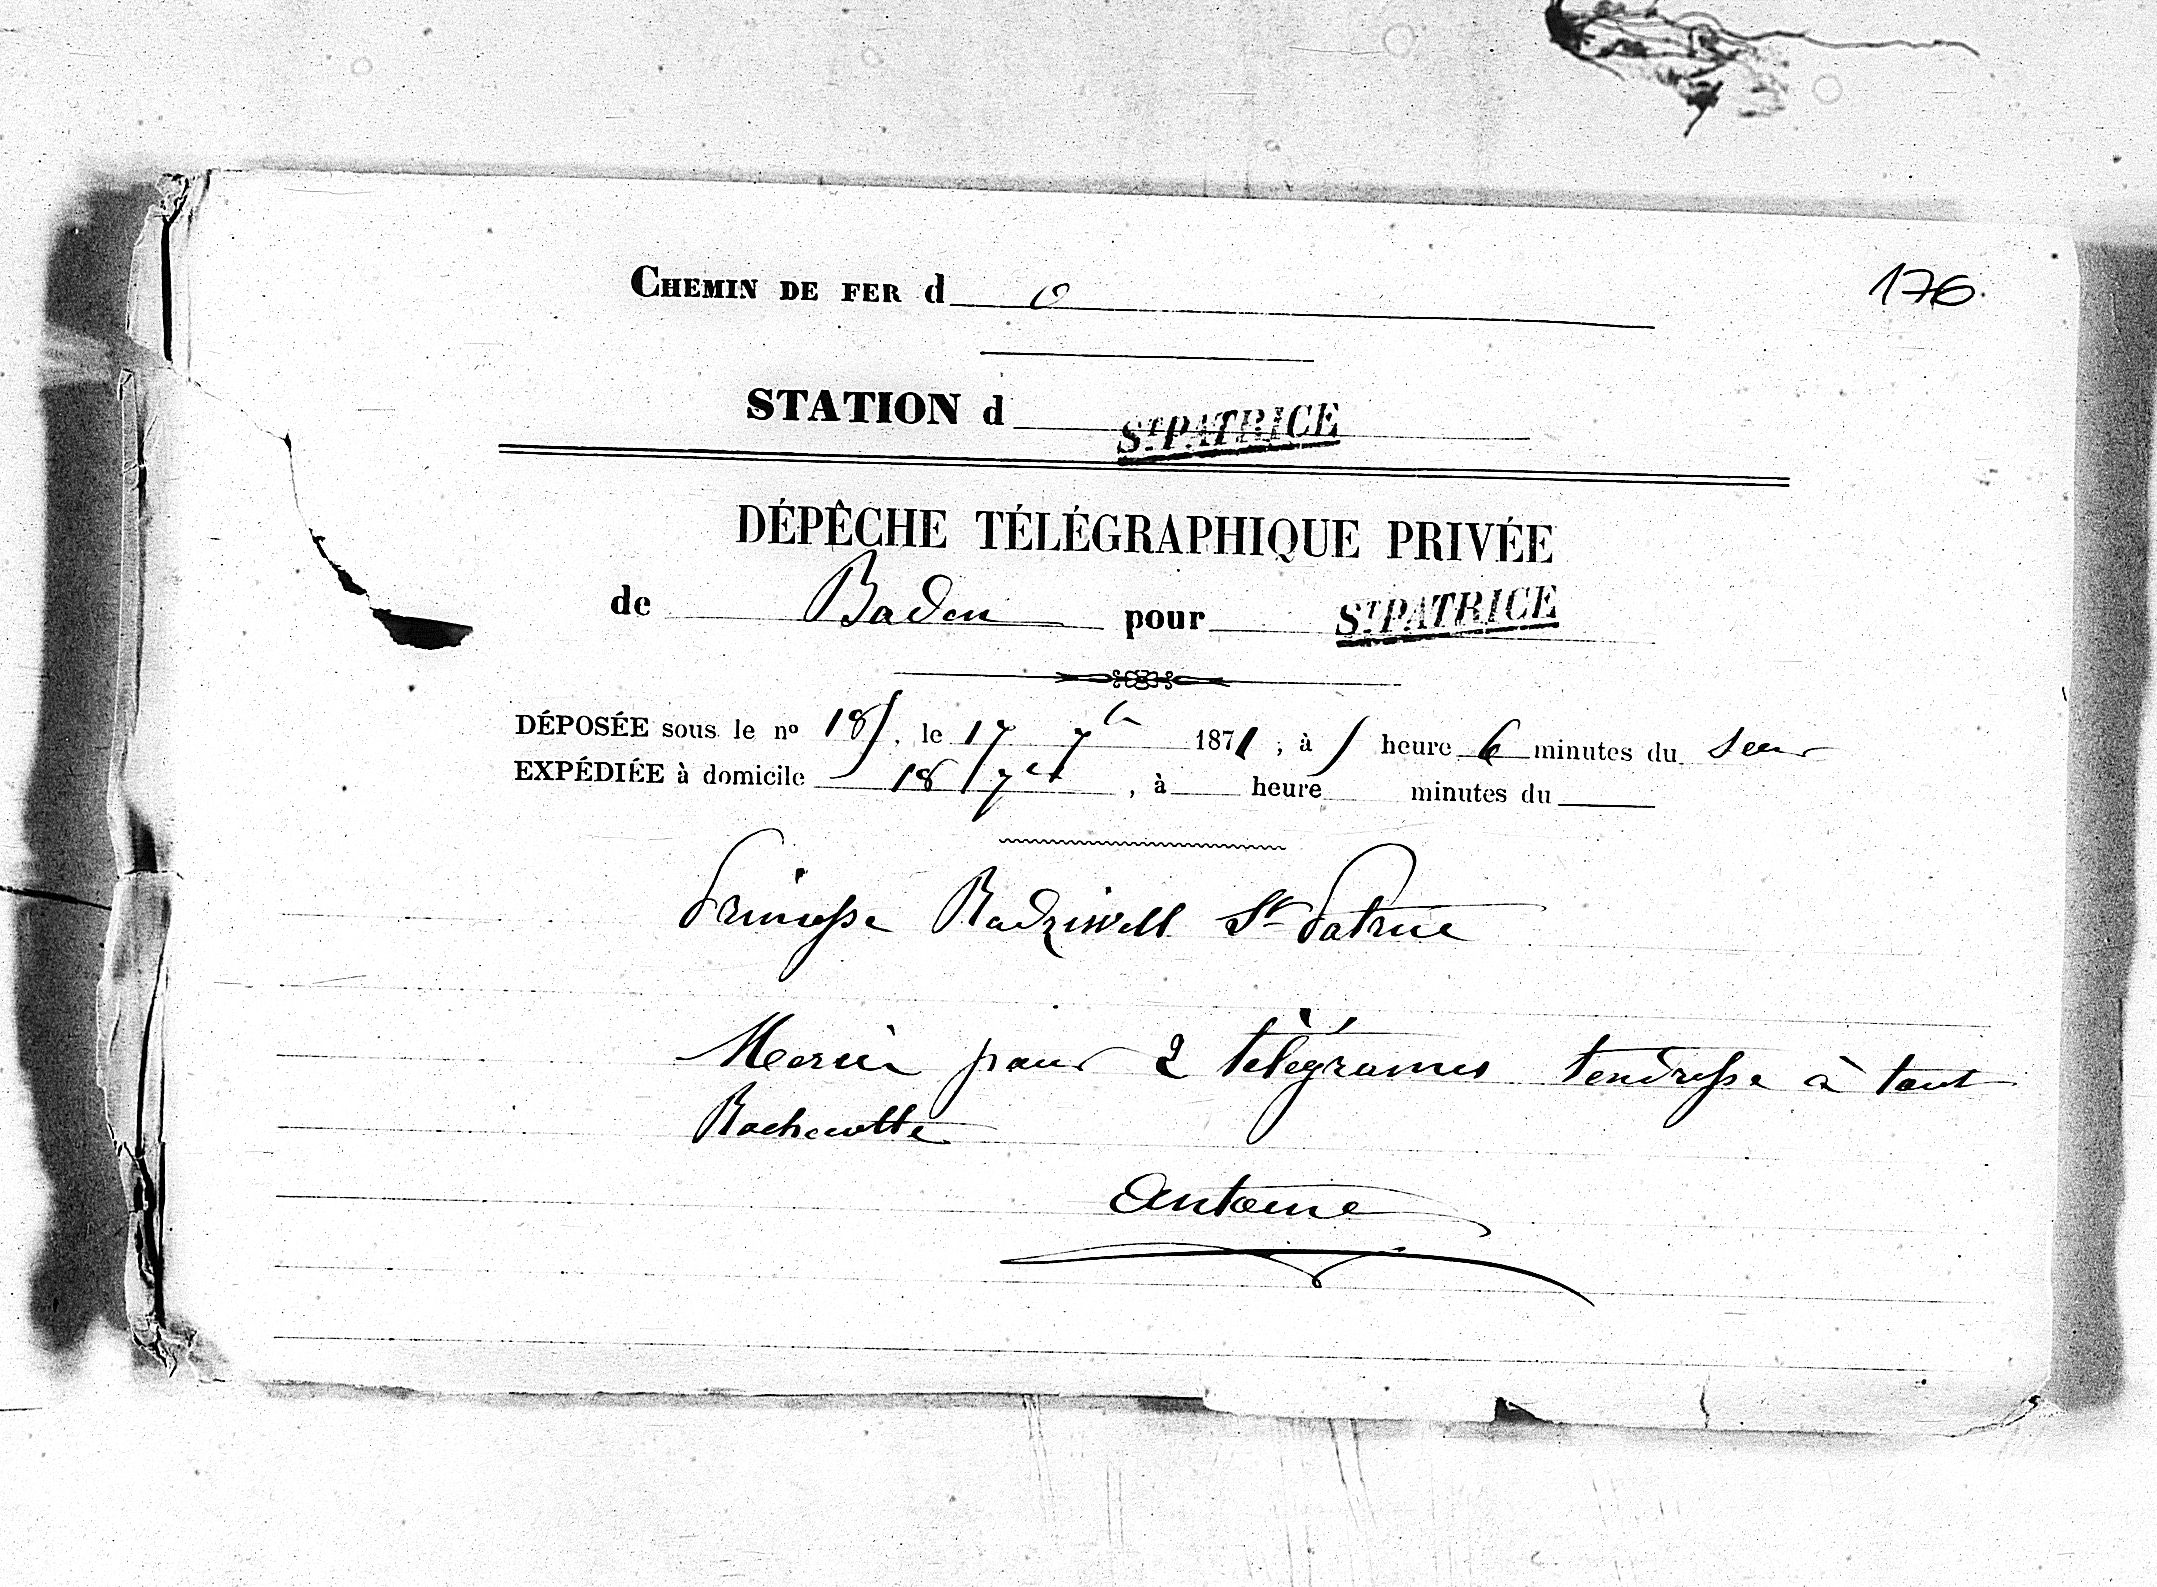 176.
CHEMIN DE FER d O
STATION d ST PATRICE
DÉPÊCHE TÉLÉGRAPHIQUE PRIVÉE
de Baden pour ST PATRICE
DÉPOSÉE sous le no 18, le 17 7b 1871, à heure 6 minutes du soir
EXPÉDIÉE à domicile 18/7, à heure minutes du
Princesse Radziwill St Patrice
Merci pour 2 télégrames tendresse à tout
Rochecotte
Antoine